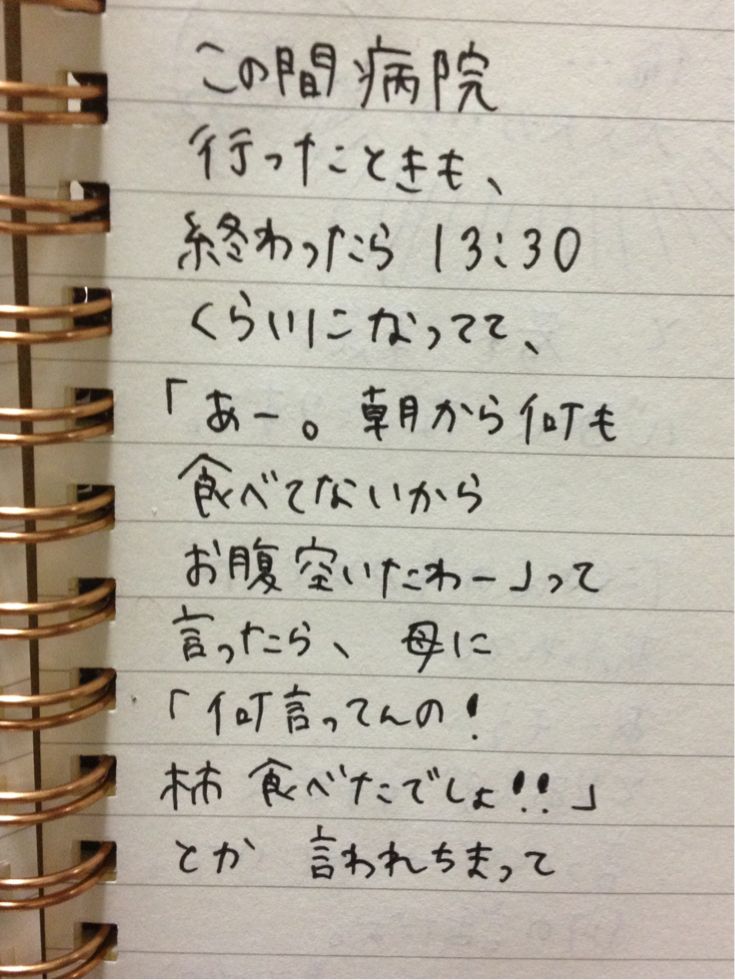 この間病院
行ったときも、
終わったら 13:30
くらいになってて、
「あー。朝から何も
食べてないから
お腹空いたわー」って
言ったら、母に
「何言ってんの!
柿食べたでしょ!!」
とか 言われちまって